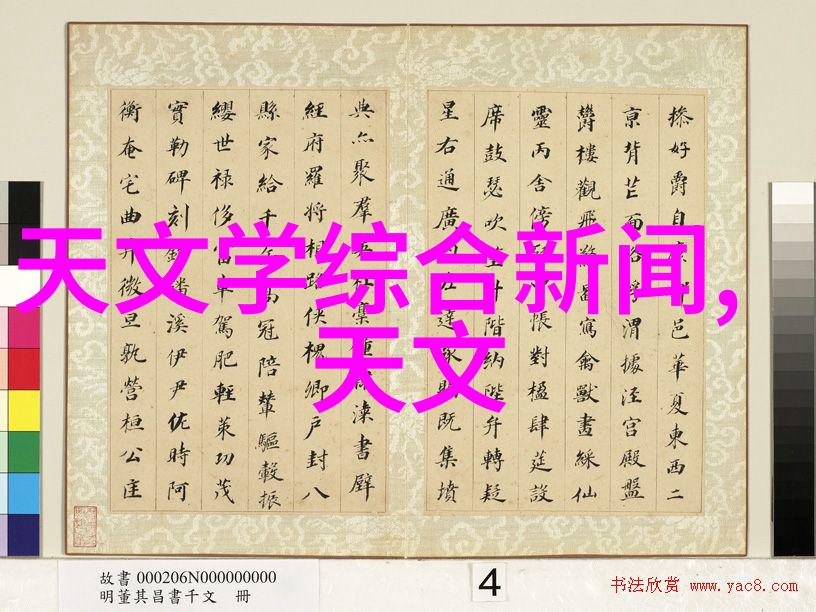 天文学综合新闻,
天文
操好爵自縻都邑華夏東西二
京背芒面洛浮渭據涇宮殿盤
鬱樓觀飛驚圖寫禽獸畫綵仙
靈丙舍傍啟甲帳對楹肆筵設
席鼓瑟吹笙升階納陛弁轉疑
星右通廣內左達承明既集墳
典亦聚羣英杜稾鍾隸漆書壁
經府羅將相路俠槐卿戶封八
縣家給千兵高冠陪輦驅轂振
纓世祿侈富車駕肥輕策功茂
實勒碑刻銘磻溪伊尹佐時阿
衡奄宅曲阜微旦孰營桓公匡
故書 000206N000000000
明董其昌書千文 冊
4
书法欣赏 www.yac8.com